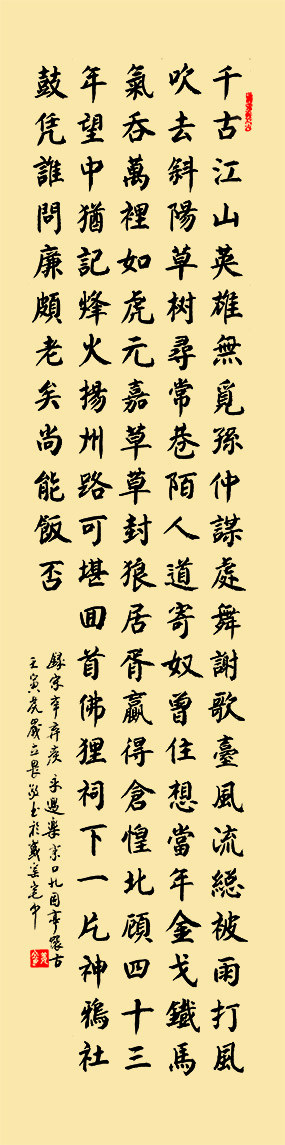 千古江山英雄無覓孫仲謀處舞謝歌臺風流緫被雨打風
吹去斜陽草树尋常巷陌人道寄奴曾住想當年金戈鐵馬
氣吞萬裡如虎元嘉草草封狼居胥贏得倉惶北顧四十三
年望中猶記烽火揚州路可堪回首佛狸祠下一片神鴉社
鼓凭誰問廉頗老矣尚能飯否
錄宋辛弃疾永遇樂京口北固亭懷古
壬寅虎歲立